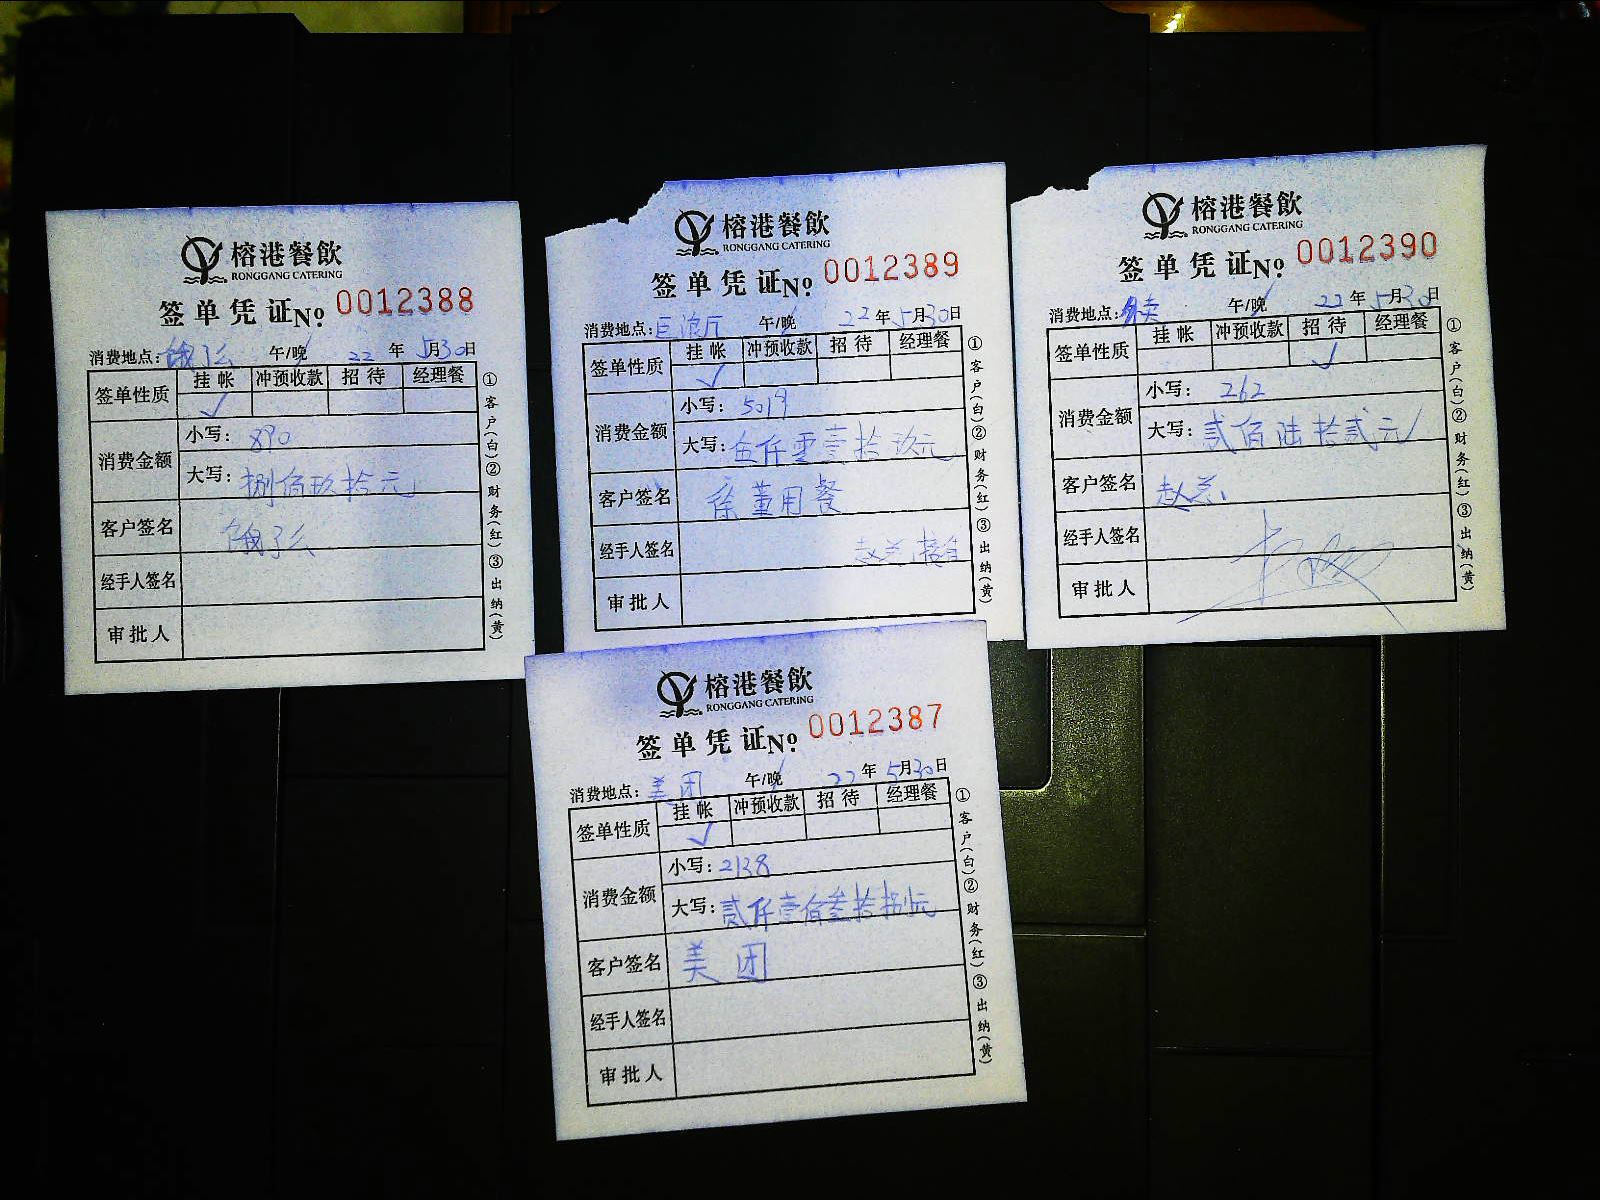 榕港餐飲
RONGGANG CATERING
签单凭证No. 0012388
消费地点：饿了么 午/晚 22年5月30日
签单性质 挂帐 冲预收款 招待 经理餐
✓
消费金额 小写：890
大写：捌佰玖拾元
客户签名 饿了么
经手人签名
审批人
①客户(白)②财务(红)③出纳(黄)
榕港餐飲
RONGGANG CATERING
签单凭证No. 0012389
消费地点：巨浪厅 午/晚 22年5月30日
签单性质 挂帐 冲预收款 招待 经理餐
✓
消费金额 小写：5019
大写：伍仟零壹拾玖元
客户签名 徐董用餐
经手人签名 赵总
审批人
①客户(白)②财务(红)③出纳(黄)
榕港餐飲
RONGGANG CATERING
签单凭证No. 0012390
消费地点：外卖 午/晚 22年5月30日
签单性质 挂帐 冲预收款 招待 经理餐
✓
消费金额 小写：262
大写：贰佰陆拾贰元
客户签名 赵总
经手人签名
审批人
①客户(白)②财务(红)③出纳(黄)
榕港餐飲
RONGGANG CATERING
签单凭证No. 0012387
消费地点：美团 午/晚 22年5月30日
签单性质 挂帐 冲预收款 招待 经理餐
✓
消费金额 小写：2138
大写：贰仟壹佰叁拾捌元
客户签名 美团
经手人签名
审批人
①客户(白)②财务(红)③出纳(黄)